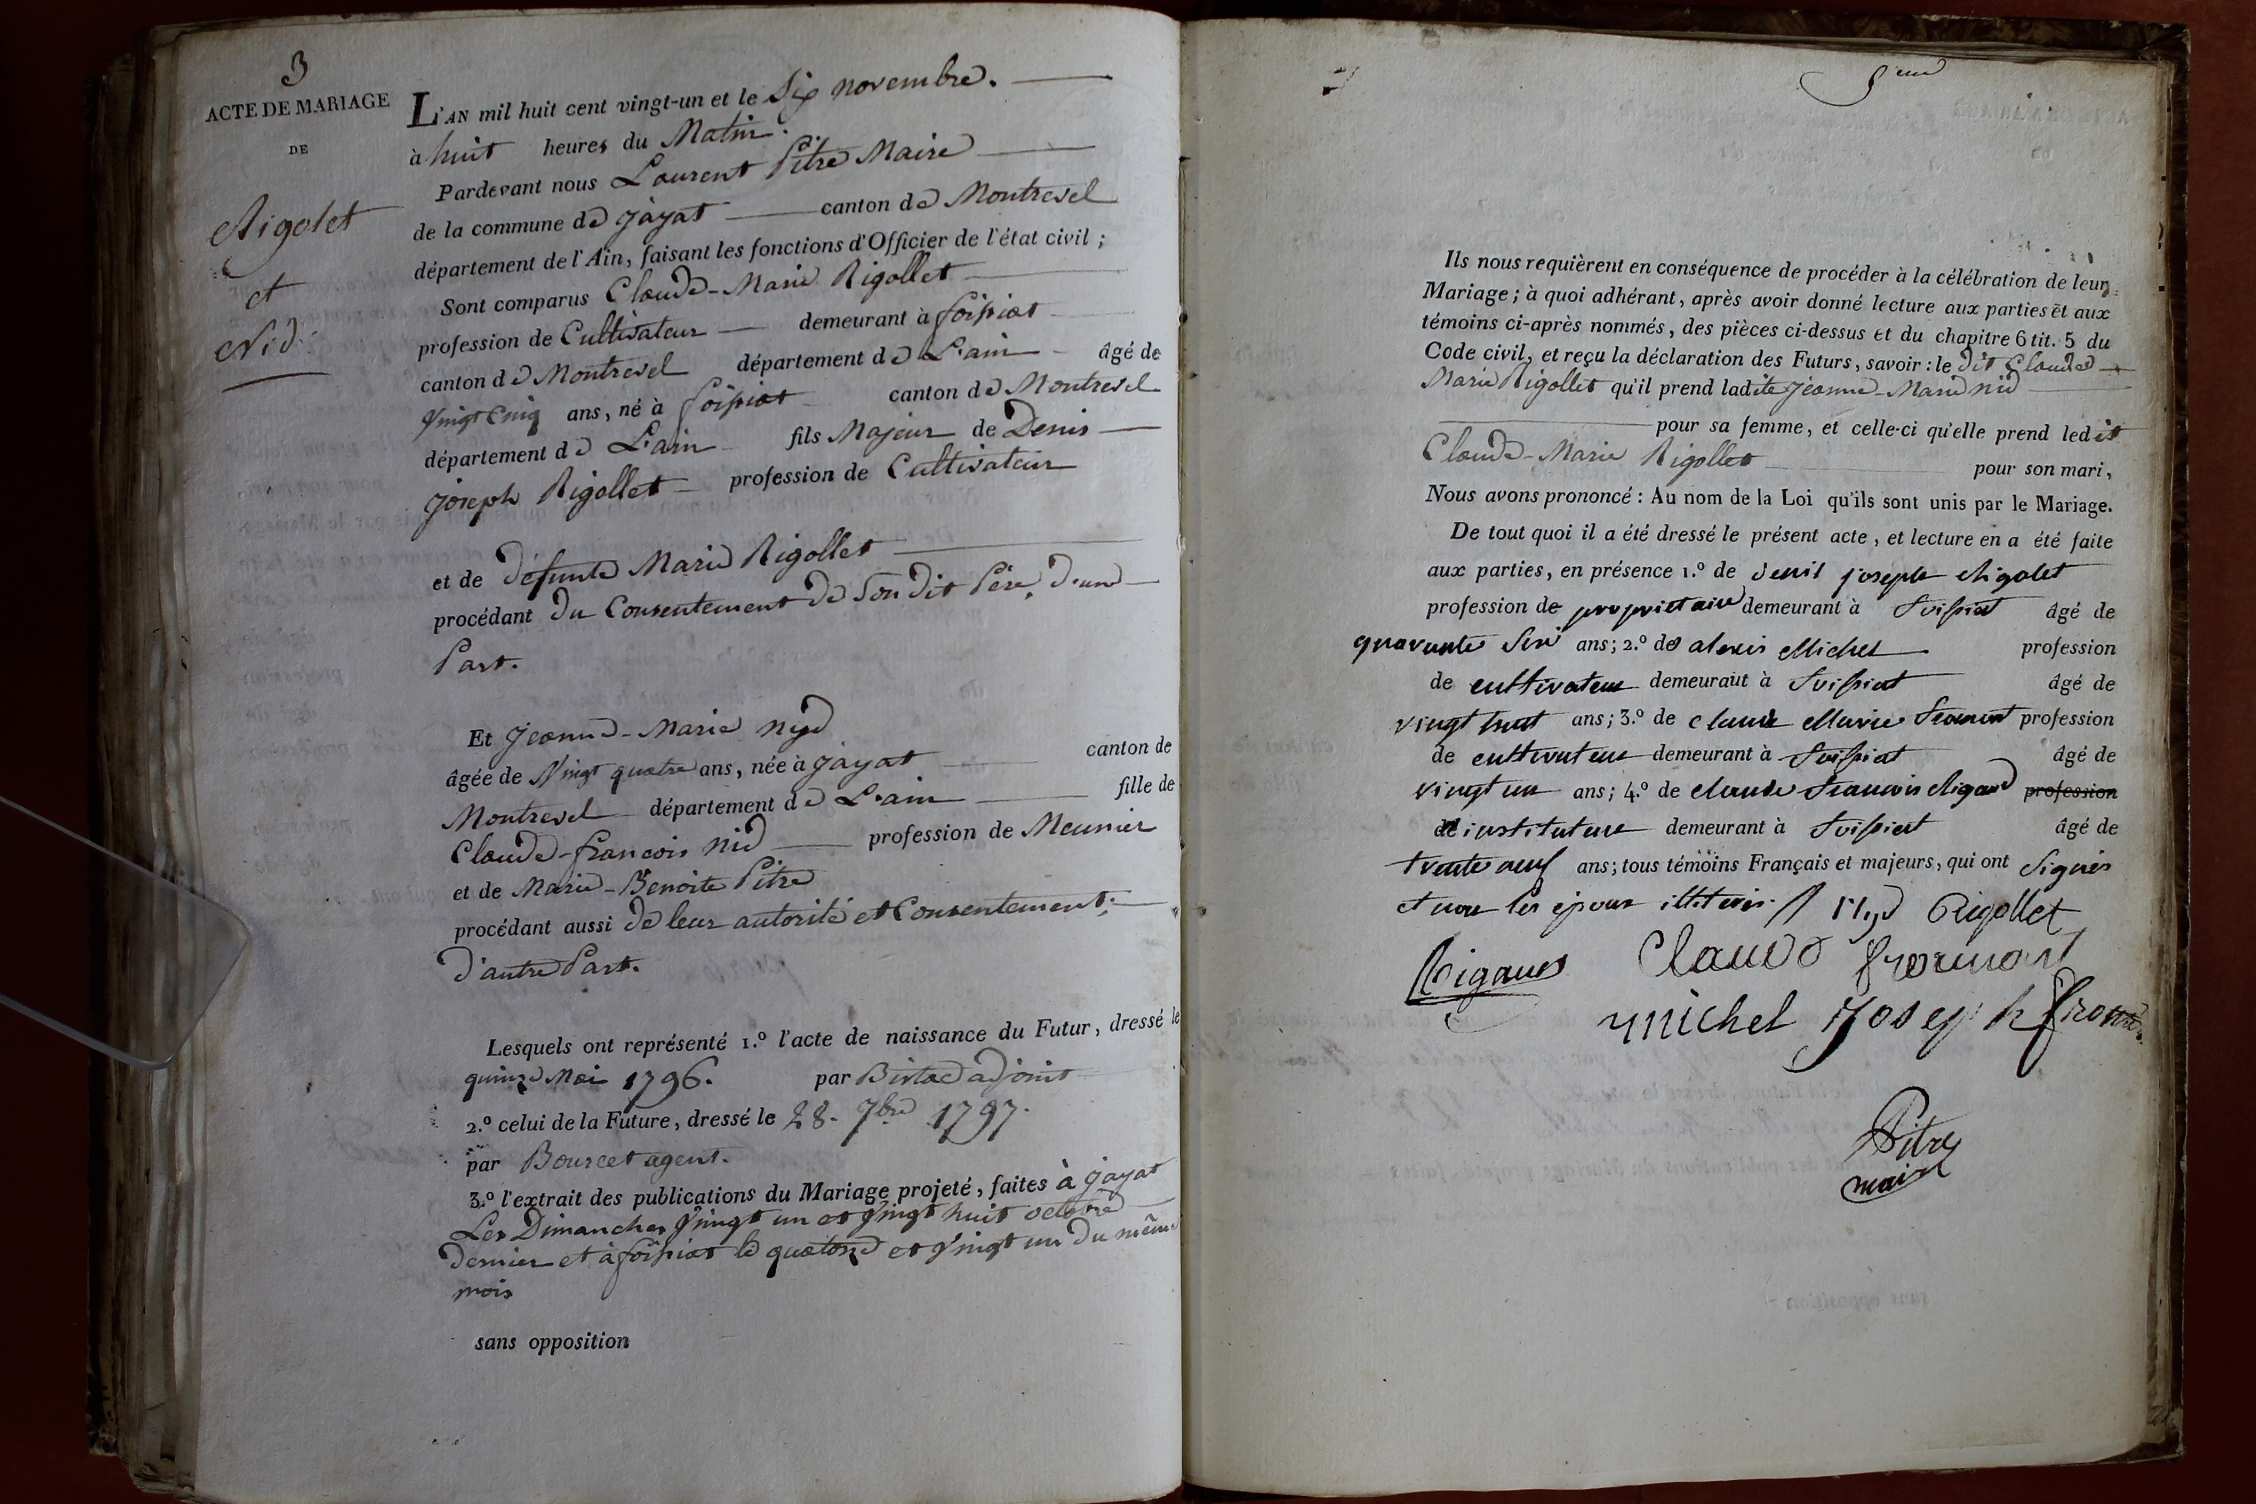 3
ACTE DE MARIAGE
DE
Rigolet
et
Nid
L'AN mil huit cent vingt-un et le Six novembre.
à huit heures du Matin.
Pardevant nous Laurent Pitre Maire
de la commune de jayat canton de Montrevel
département de l'Ain, faisant les fonctions d'Officier de l'état civil ;
Sont comparus Claude-Marie Rigollet
profession de Cultivateur demeurant à foissiat
canton de Montrevel département de L'ain âgé de
Vingt Cinq ans, né à foissiat canton de Montrevel
département de L'ain fils Majeur de Denis
joseph Rigollet profession de Cultivateur
et de défunte Marie Rigollet
procédant du Consentement de Son dit Père, d'une
Part.
Et jeanne-Marie nyd
âgée de Vingt quatre ans, née à jayat canton de
Montrevel département de L'ain fille de
Claude-francois nid profession de Meunier
et de Marie-Benoite Pitre
procédant aussi de leur autorité et Consentement,
d'autre Part.
Lesquels ont représenté 1.º l'acte de naissance du Futur, dressé le
quinze Mai 1796. par adjoint
2.º celui de la Future, dressé le 28. 7bre 1797.
par Bourcet agent.
3.º l'extrait des publications du Mariage projeté, faites à jayat
Les Dimanches Vingt un et Vingt huit octobre
dernier et à foissiat le quatorze et Vingt un du même
mois
sans opposition
Ils nous requièrent en conséquence de procéder à la célébration de leur
Mariage ; à quoi adhérant, après avoir donné lecture aux parties et aux
témoins ci-après nommés, des pièces ci-dessus et du chapitre 6 tit. 5 du
Code civil, et reçu la déclaration des Futurs, savoir : le dit Claude
Marie Rigollet qu'il prend ladite jeanne-Marie nid
pour sa femme, et celle-ci qu'elle prend ledit
Claude-Marie Rigollet pour son mari,
Nous avons prononcé : Au nom de la Loi qu'ils sont unis par le Mariage.
De tout quoi il a été dressé le présent acte, et lecture en a été faite
aux parties, en présence 1.º de denis joseph Rigolet
profession de propriétaire demeurant à foissiat âgé de
quarante ans ; 2.º de alexis Michel profession
de cultivateur demeurant à foissiat âgé de
vingt huit ans ; 3.º de claude Marie profession
de cultivateur demeurant à foissiat âgé de
vingt un ans ; 4.º de claude francois Rigaud profession
de instituteur demeurant à foissiat âgé de
trente neuf ans ; tous témoins Français et majeurs, qui ont Signés
et non les époux illiterés. Nyd Rigollet
Rigaud Claude fromont
michel Joseph
Pitre
maire